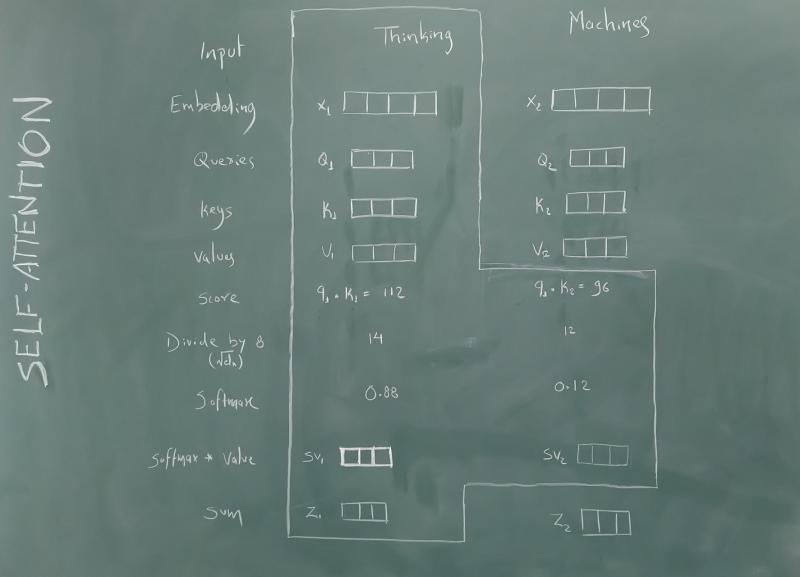 SELF-ATTENTION
Input Thinking Machines
Embedding X₁ X₂
Queries Q₁ Q₂
Keys K₁ K₂
Values V₁ V₂
Score q₁ • K₁ = 112 q₁ • K₂ = 96
Divide by 8 14 12
(√dₖ)
Softmax 0.88 0.12
Softmax * Value SV₁ SV₂
Sum Z₁ Z₂